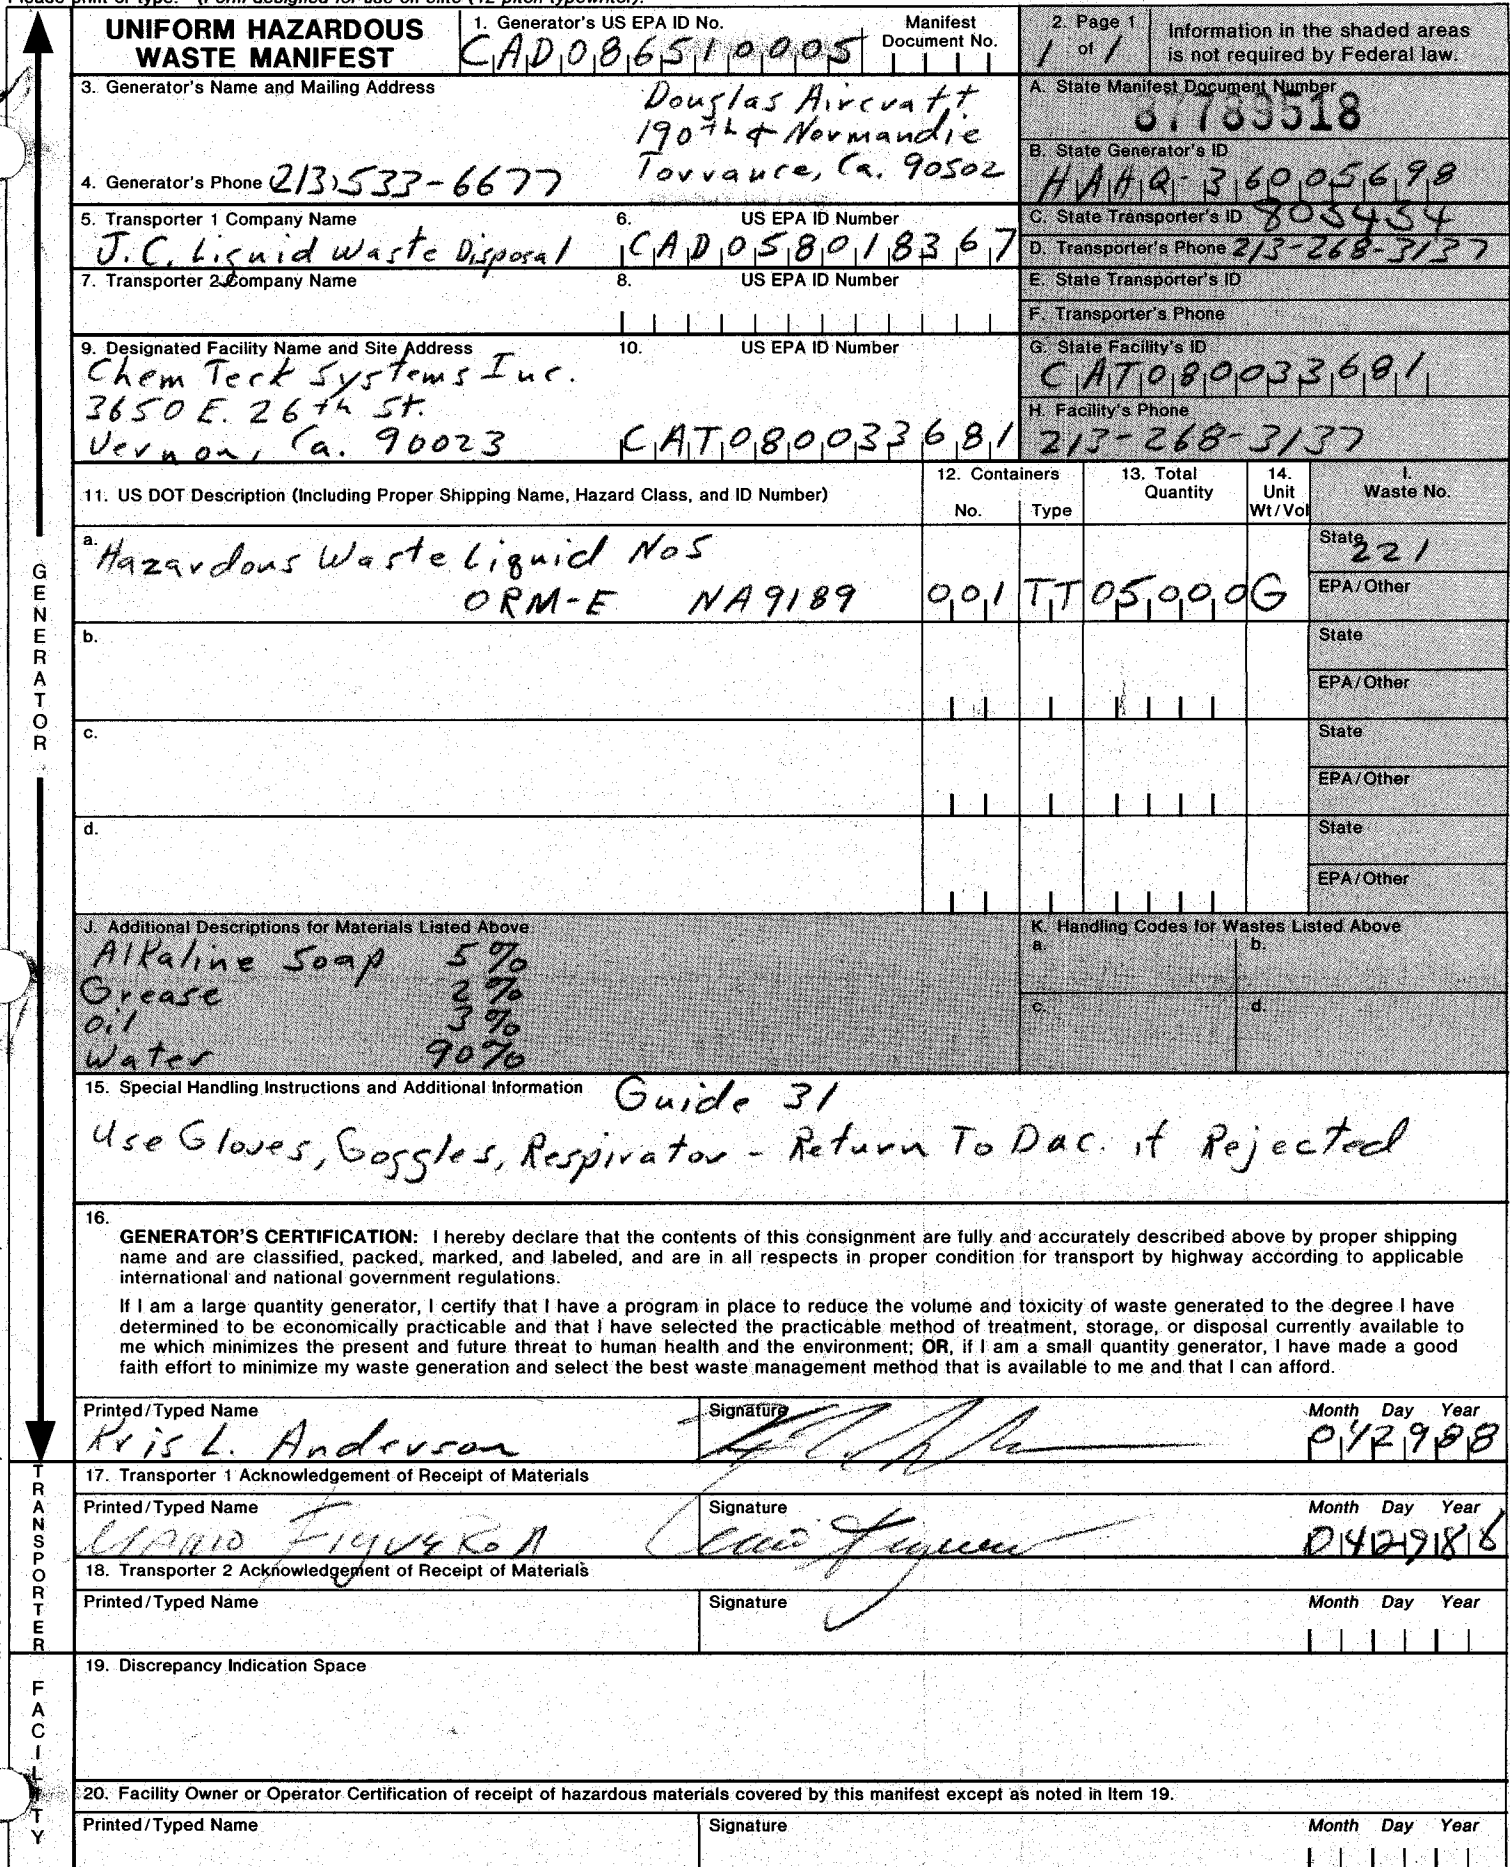 UNIFORM HAZARDOUS
WASTE MANIFEST
1. Generator's US EPA ID No.
CAD086510005
Manifest
Document No.
2. Page 1
1 of 1
Information in the shaded areas
is not required by Federal law.
3. Generator's Name and Mailing Address
Douglas Aircraft
190th & Normandie
Torrance, Ca. 90502
4. Generator's Phone (213) 533-6677
A. State Manifest Document Number
87789518
B. State Generator's ID
HAHQ-36005698
5. Transporter 1 Company Name
J.C. Liquid Waste Disposal
6. US EPA ID Number
CAD058018367
C. State Transporter's ID 805454
D. Transporter's Phone 213-268-3137
7. Transporter 2 Company Name
8. US EPA ID Number
E. State Transporter's ID
F. Transporter's Phone
9. Designated Facility Name and Site Address
Chem Teck Systems Inc.
3650 E. 26th St.
Vernon, Ca. 90023
10. US EPA ID Number
CAT080033681
G. State Facility's ID
CAT080033681
H. Facility's Phone
213-268-3137
11. US DOT Description (Including Proper Shipping Name, Hazard Class, and ID Number)
12. Containers
No. Type
13. Total
Quantity
14.
Unit
Wt/Vol
I.
Waste No.
GENERATOR
a. Hazardous Waste Liquid NoS
ORM-E NA9189 001 TT 05000 G
State
221
EPA/Other
b.
State
EPA/Other
c.
State
EPA/Other
d.
State
EPA/Other
J. Additional Descriptions for Materials Listed Above
Alkaline Soap 5%
Grease 2%
oil 3%
Water 90%
K. Handling Codes for Wastes Listed Above
a. b.
c. d.
15. Special Handling Instructions and Additional Information Guide 31
Use Gloves, Goggles, Respirator - Return To Dac. if Rejected
16.
GENERATOR'S CERTIFICATION: I hereby declare that the contents of this consignment are fully and accurately described above by proper shipping
name and are classified, packed, marked, and labeled, and are in all respects in proper condition for transport by highway according to applicable
international and national government regulations.
If I am a large quantity generator, I certify that I have a program in place to reduce the volume and toxicity of waste generated to the degree I have
determined to be economically practicable and that I have selected the practicable method of treatment, storage, or disposal currently available to
me which minimizes the present and future threat to human health and the environment; OR, if I am a small quantity generator, I have made a good
faith effort to minimize my waste generation and select the best waste management method that is available to me and that I can afford.
Printed/Typed Name Signature Month Day Year
Kris L. Anderson 042988
TRANSPORTER
17. Transporter 1 Acknowledgement of Receipt of Materials
Printed/Typed Name Signature Month Day Year
Mario Figueroa 042988
18. Transporter 2 Acknowledgement of Receipt of Materials
Printed/Typed Name Signature Month Day Year
FACILITY
19. Discrepancy Indication Space
20. Facility Owner or Operator Certification of receipt of hazardous materials covered by this manifest except as noted in Item 19.
Printed/Typed Name Signature Month Day Year